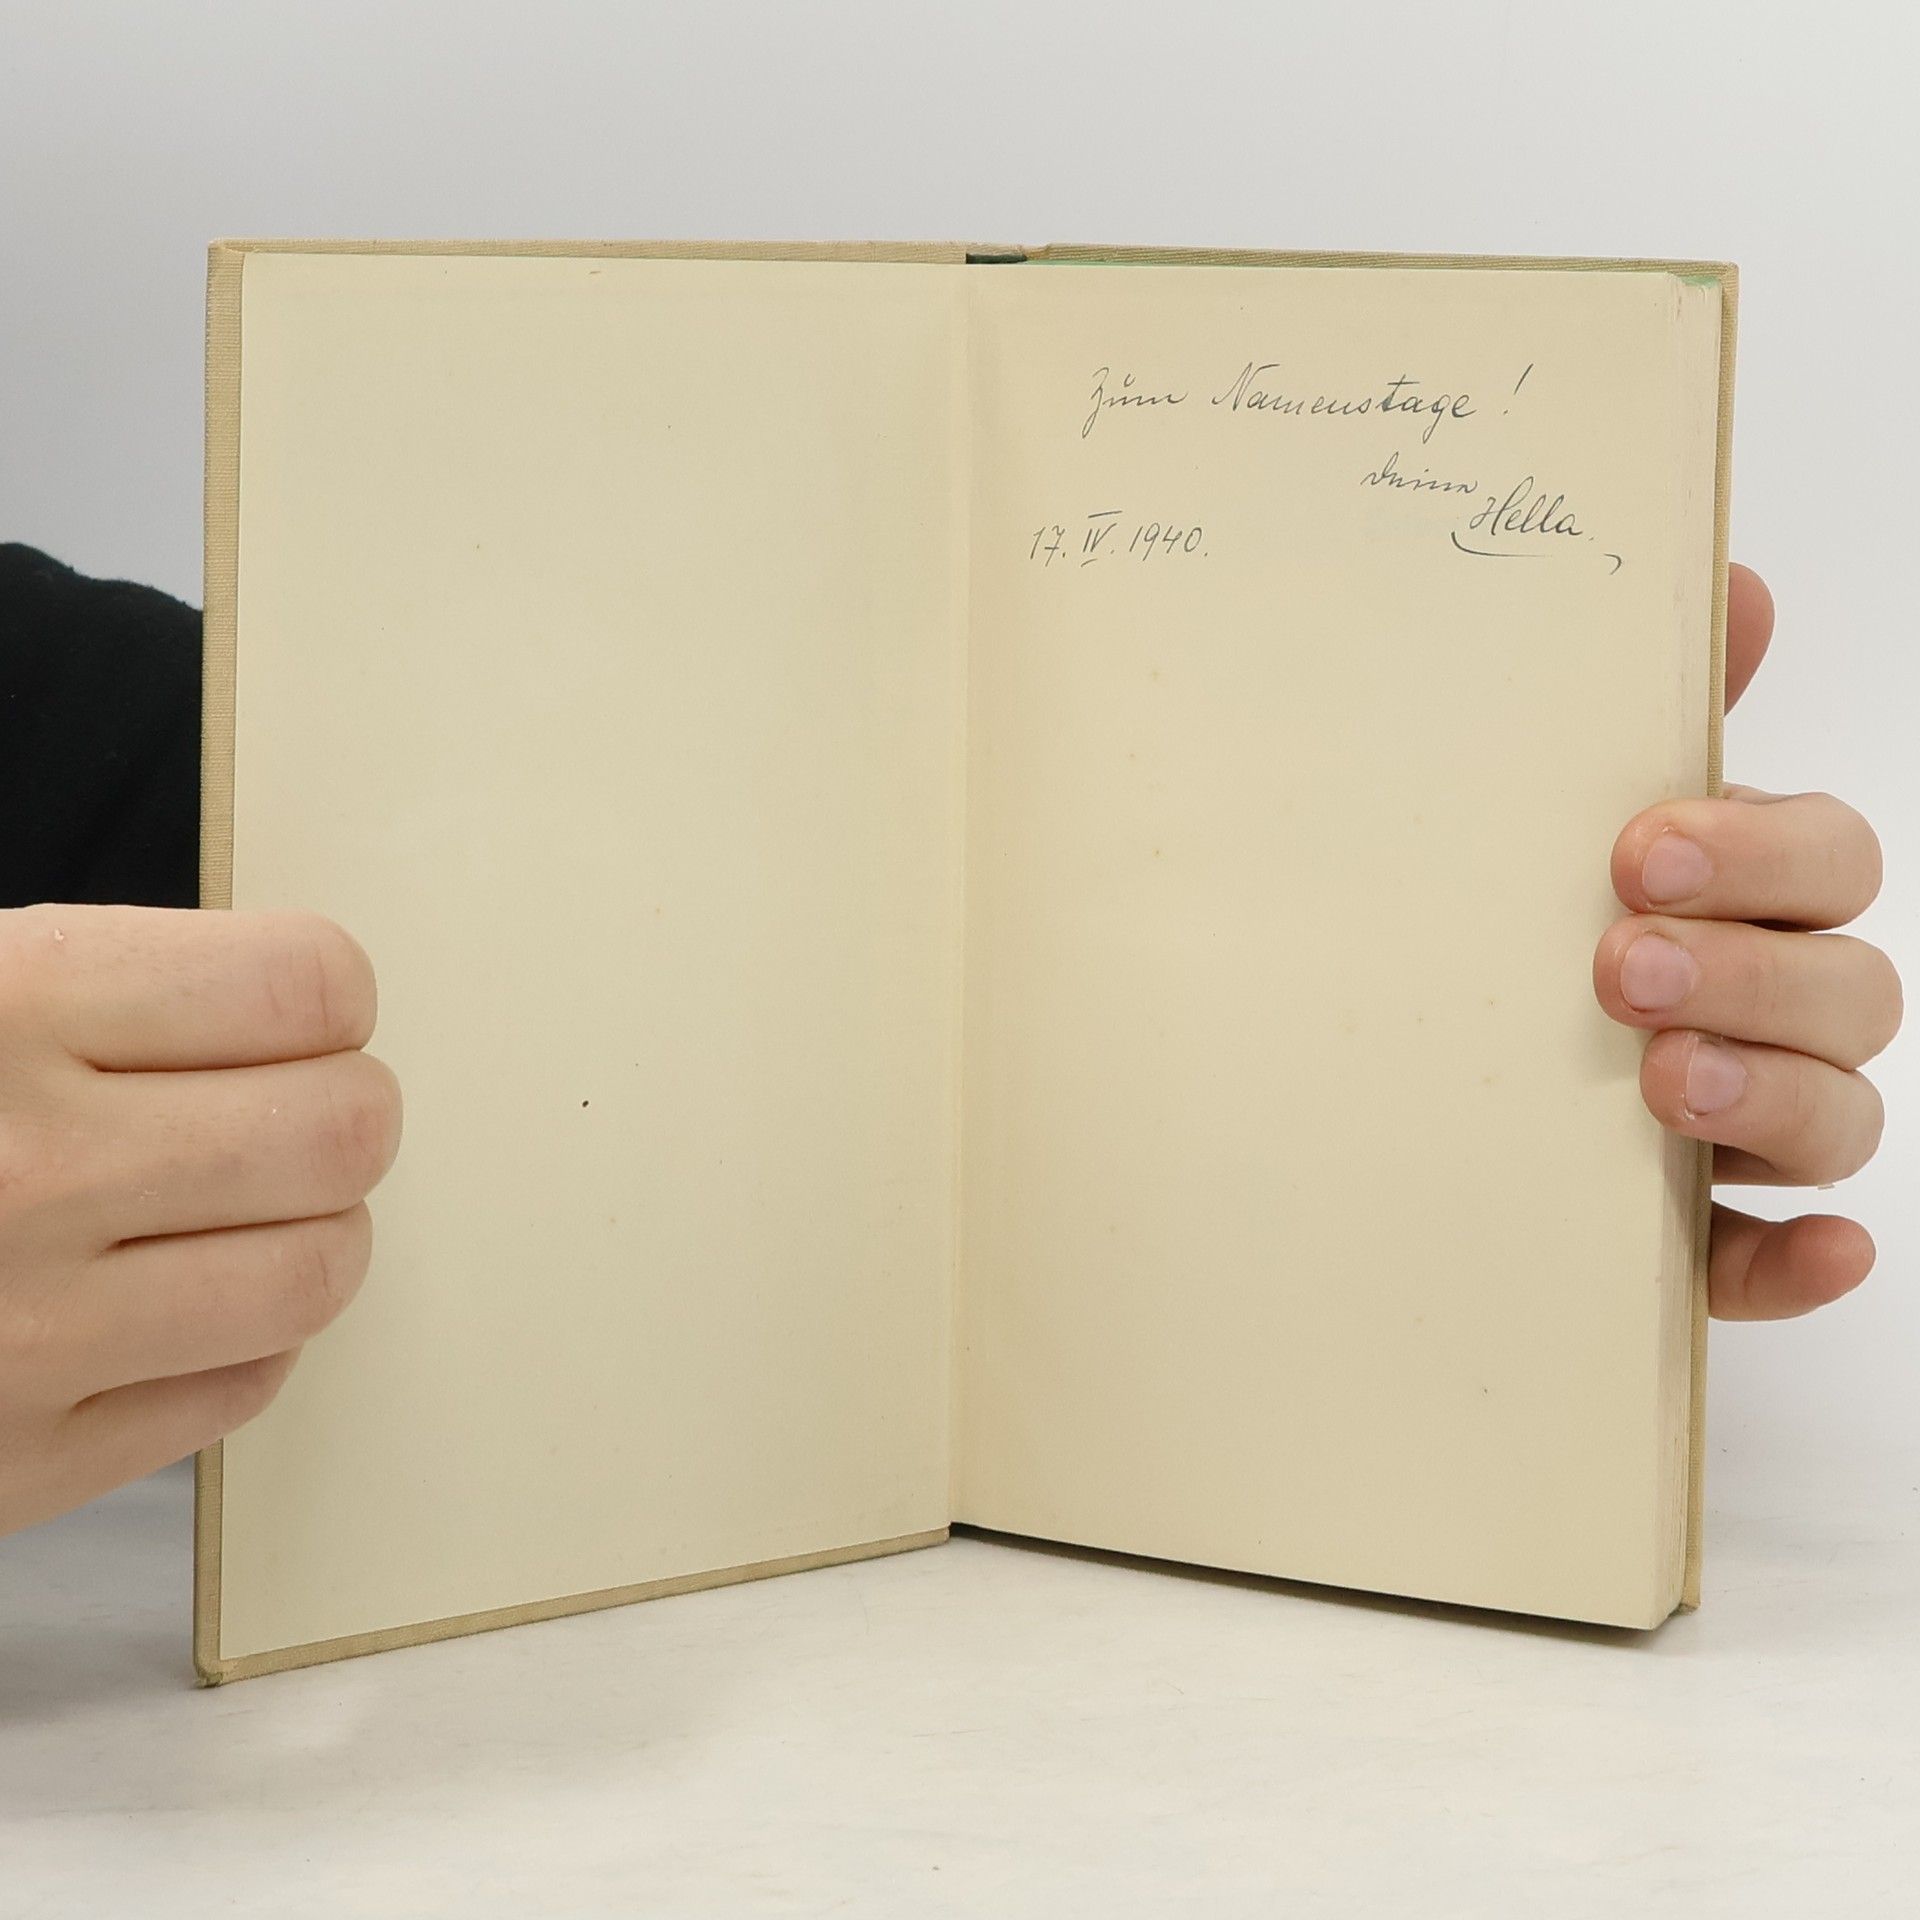 Zum Namenstage!
Deine
Hella.
17. IV. 1940.